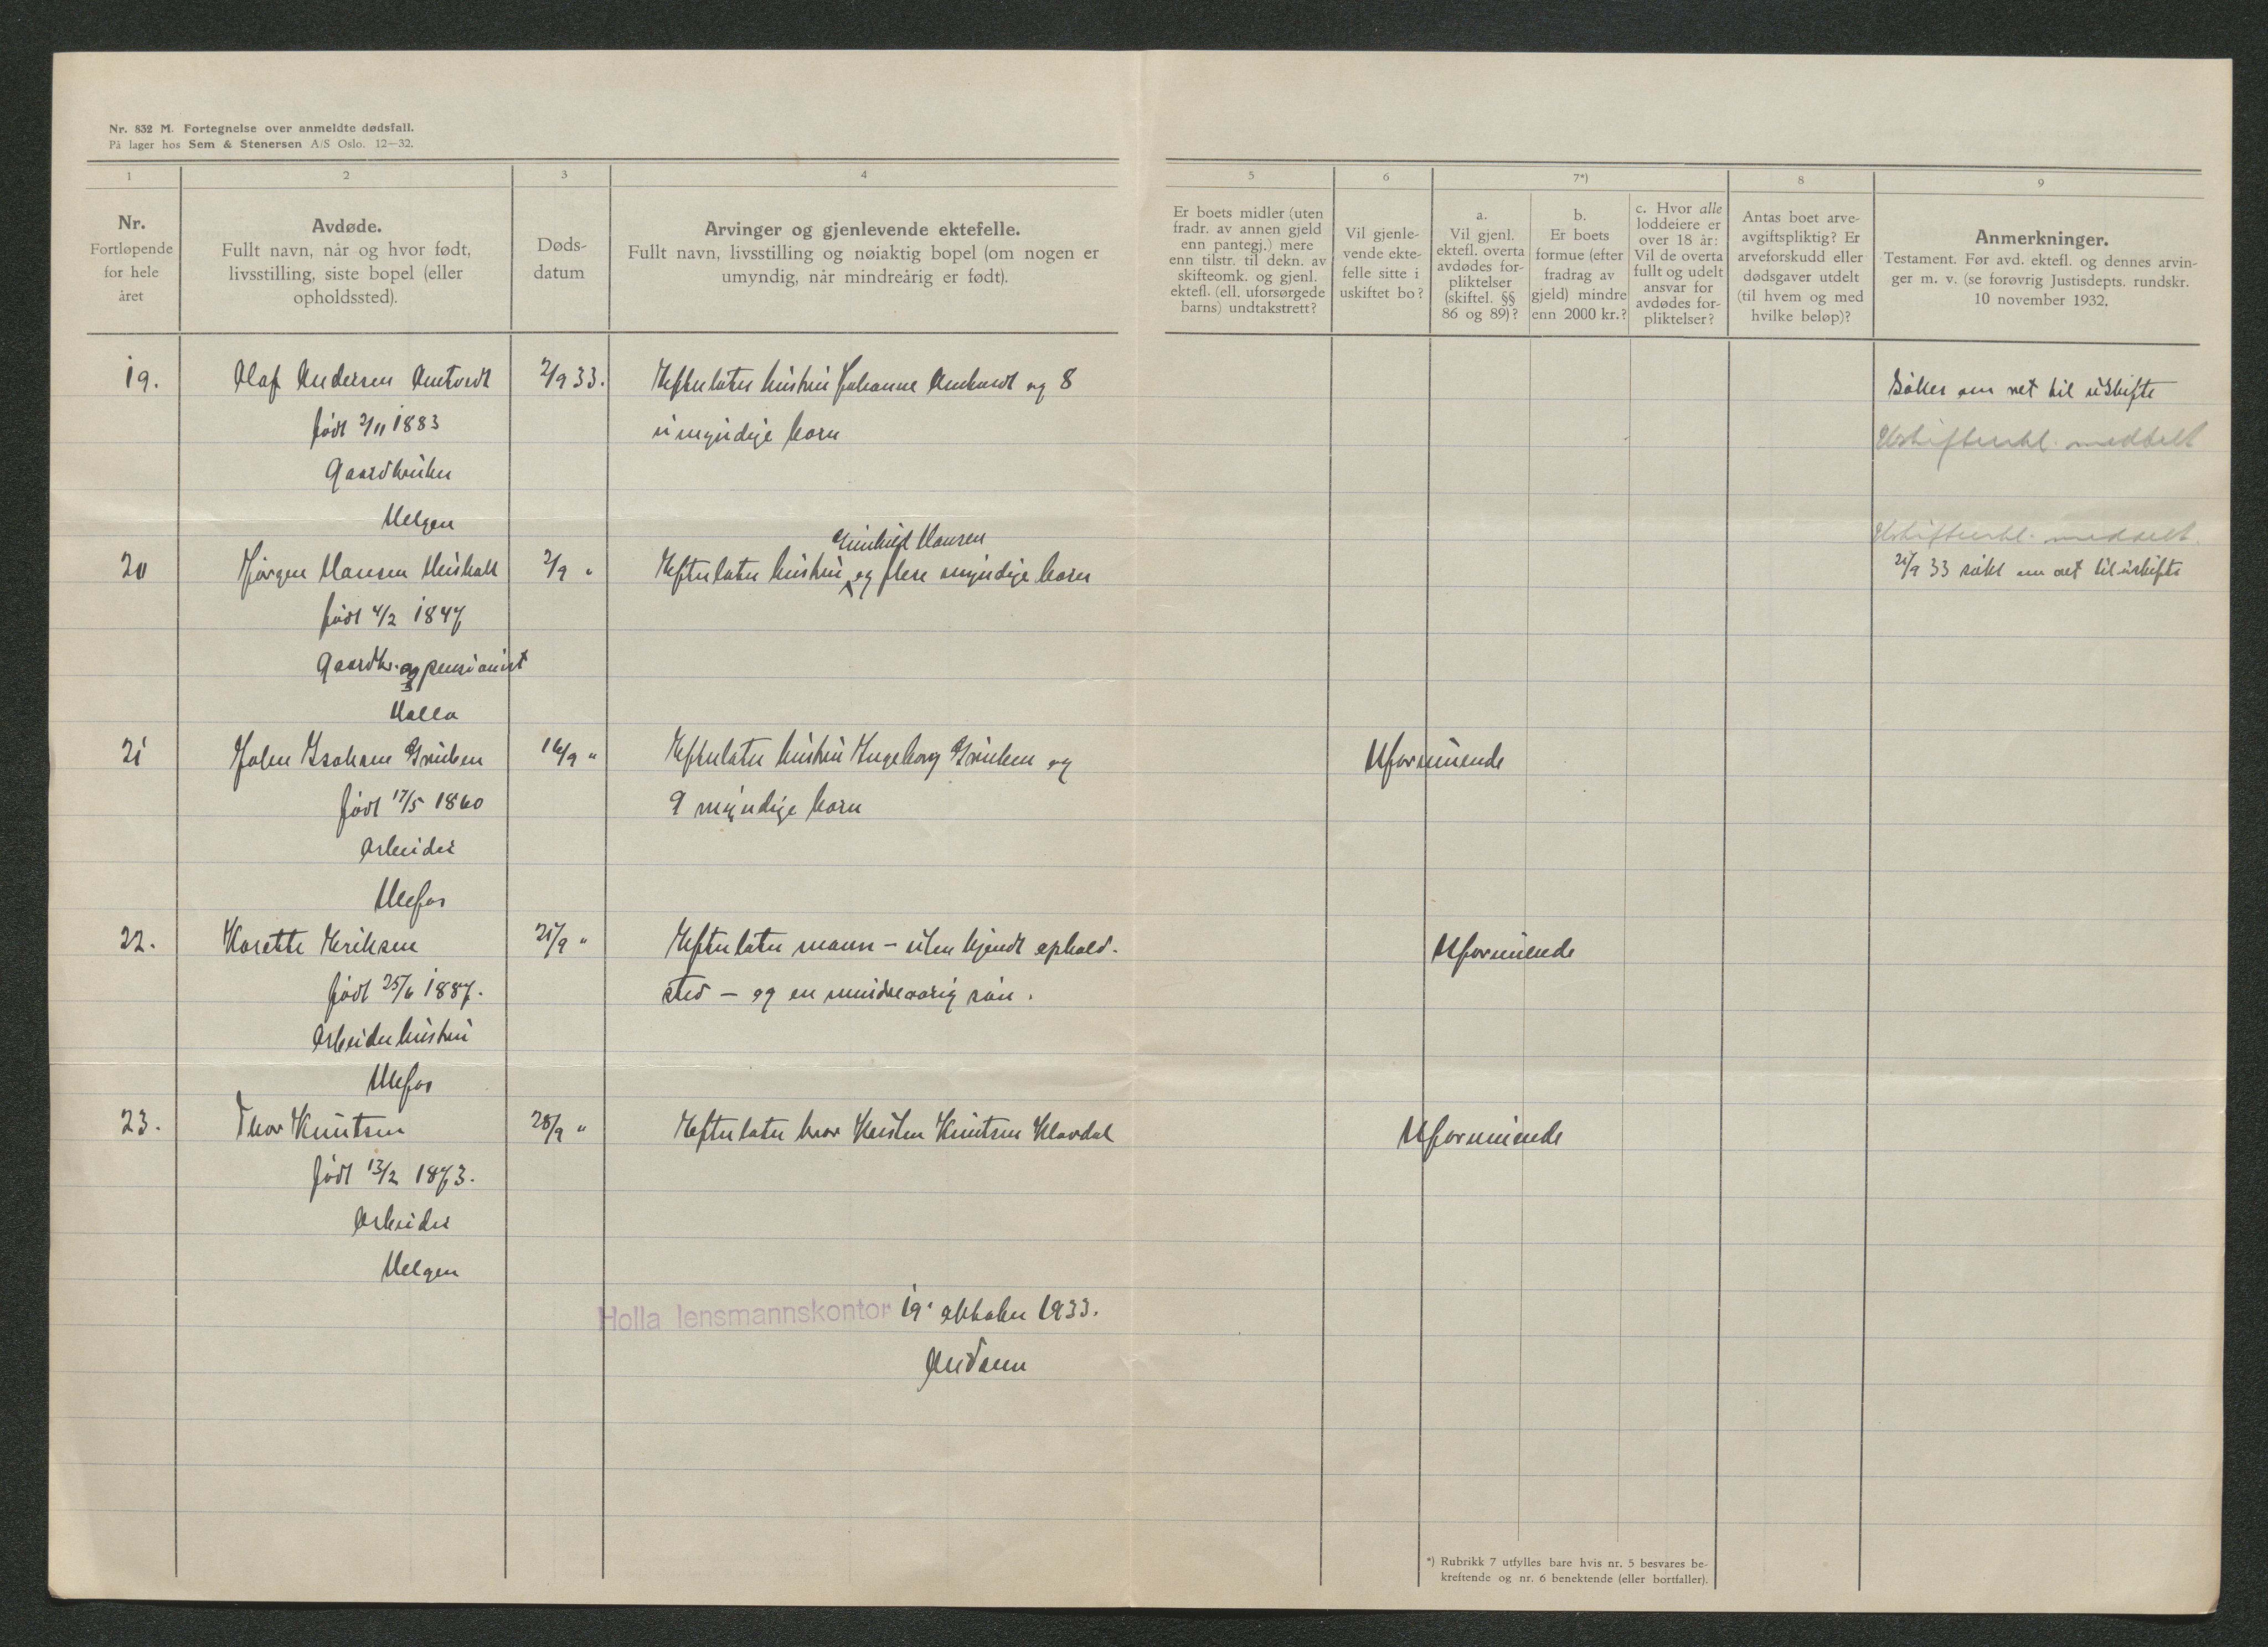 Nr. 832 M. Fortegnelse over anmeldte dødsfall.
På lager hos Sem & Stenersen A/S Oslo. 12—32.
1
2
3
4
5
6
7*)
8
9
Nr.
Fortløpende
for hele
året
Avdøde.
Fullt navn, når og hvor født,
livsstilling, siste bopel (eller
opholdssted).
Døds-
datum
Arvinger og gjenlevende ektefelle.
Fullt navn, livsstilling og nøiaktig bopel (om nogen er
umyndig, når mindreårig er født).
Er boets midler (uten
fradr. av annen gjeld
enn pantegj.) mere
enn tilstr. til dekn. av
skifteomk. og gjenl.
ektefl. (ell. uforsørgede
barns) undtakstrett?
Vil gjenle-
vende ekte-
felle sitte i
uskiftet bo?
a.
Vil gjenl.
ektefl. overta
avdødes for-
pliktelser
(skiftel. §§
86 og 89)?
b.
Er boets
formue (efter
fradrag av
gjeld) mindre
enn 2000 kr.?
c. Hvor alle
loddeiere er
over 18 år:
Vil de overta
fullt og udelt
ansvar for
avdødes for-
pliktelser?
Antas boet arve-
avgiftspliktig? Er
arveforskudd eller
dødsgaver utdelt
(til hvem og med
hvilke beløp)?
Anmerkninger.
Testament. Før avd. ektefl. og dennes arvin-
ger m. v. (se forøvrig Justisdepts. rundskr.
10 november 1932.
19. Olaf Andersen 2/9 33. Efterlater hustru Johanne og 8 Søker om ret til uskifte
født 2/11 1883 umyndige born Uskifteerkl. meddelt
Gaardbruker
Helgen
Gunhild Hansen Uskifteerkl. meddelt.
20 Jørgen Hansen 2/9 " Efterlater hustru og flere myndige born 21/9 33 søkt om ret til uskifte
født 4/2 1847
Gaardbr. og pensionist
Holla
21 John Isaksen Gruben 16/9 " Efterlater hustru Ingeborg Gruben og Uformuende
født 17/5 1860 9 myndige born
Arbeider
Ulefos
22. Karette Eriksen 21/9 " Efterlater mann – uten kjendt ophold- Uformuende
født 25/6 1887. sted – og en mindreaarig søn.
Arbeiderhustru
Ulefos
23. Thor Knutsen 28/9 " Efterlater bror Knutsen Uformuende
født 13/2 1873.
Arbeider
Helgen
Holla lensmannskontor 19. oktober 1933.
*) Rubrikk 7 utfylles bare hvis nr. 5 besvares be-
kreftende og nr. 6 benektende (eller bortfaller).